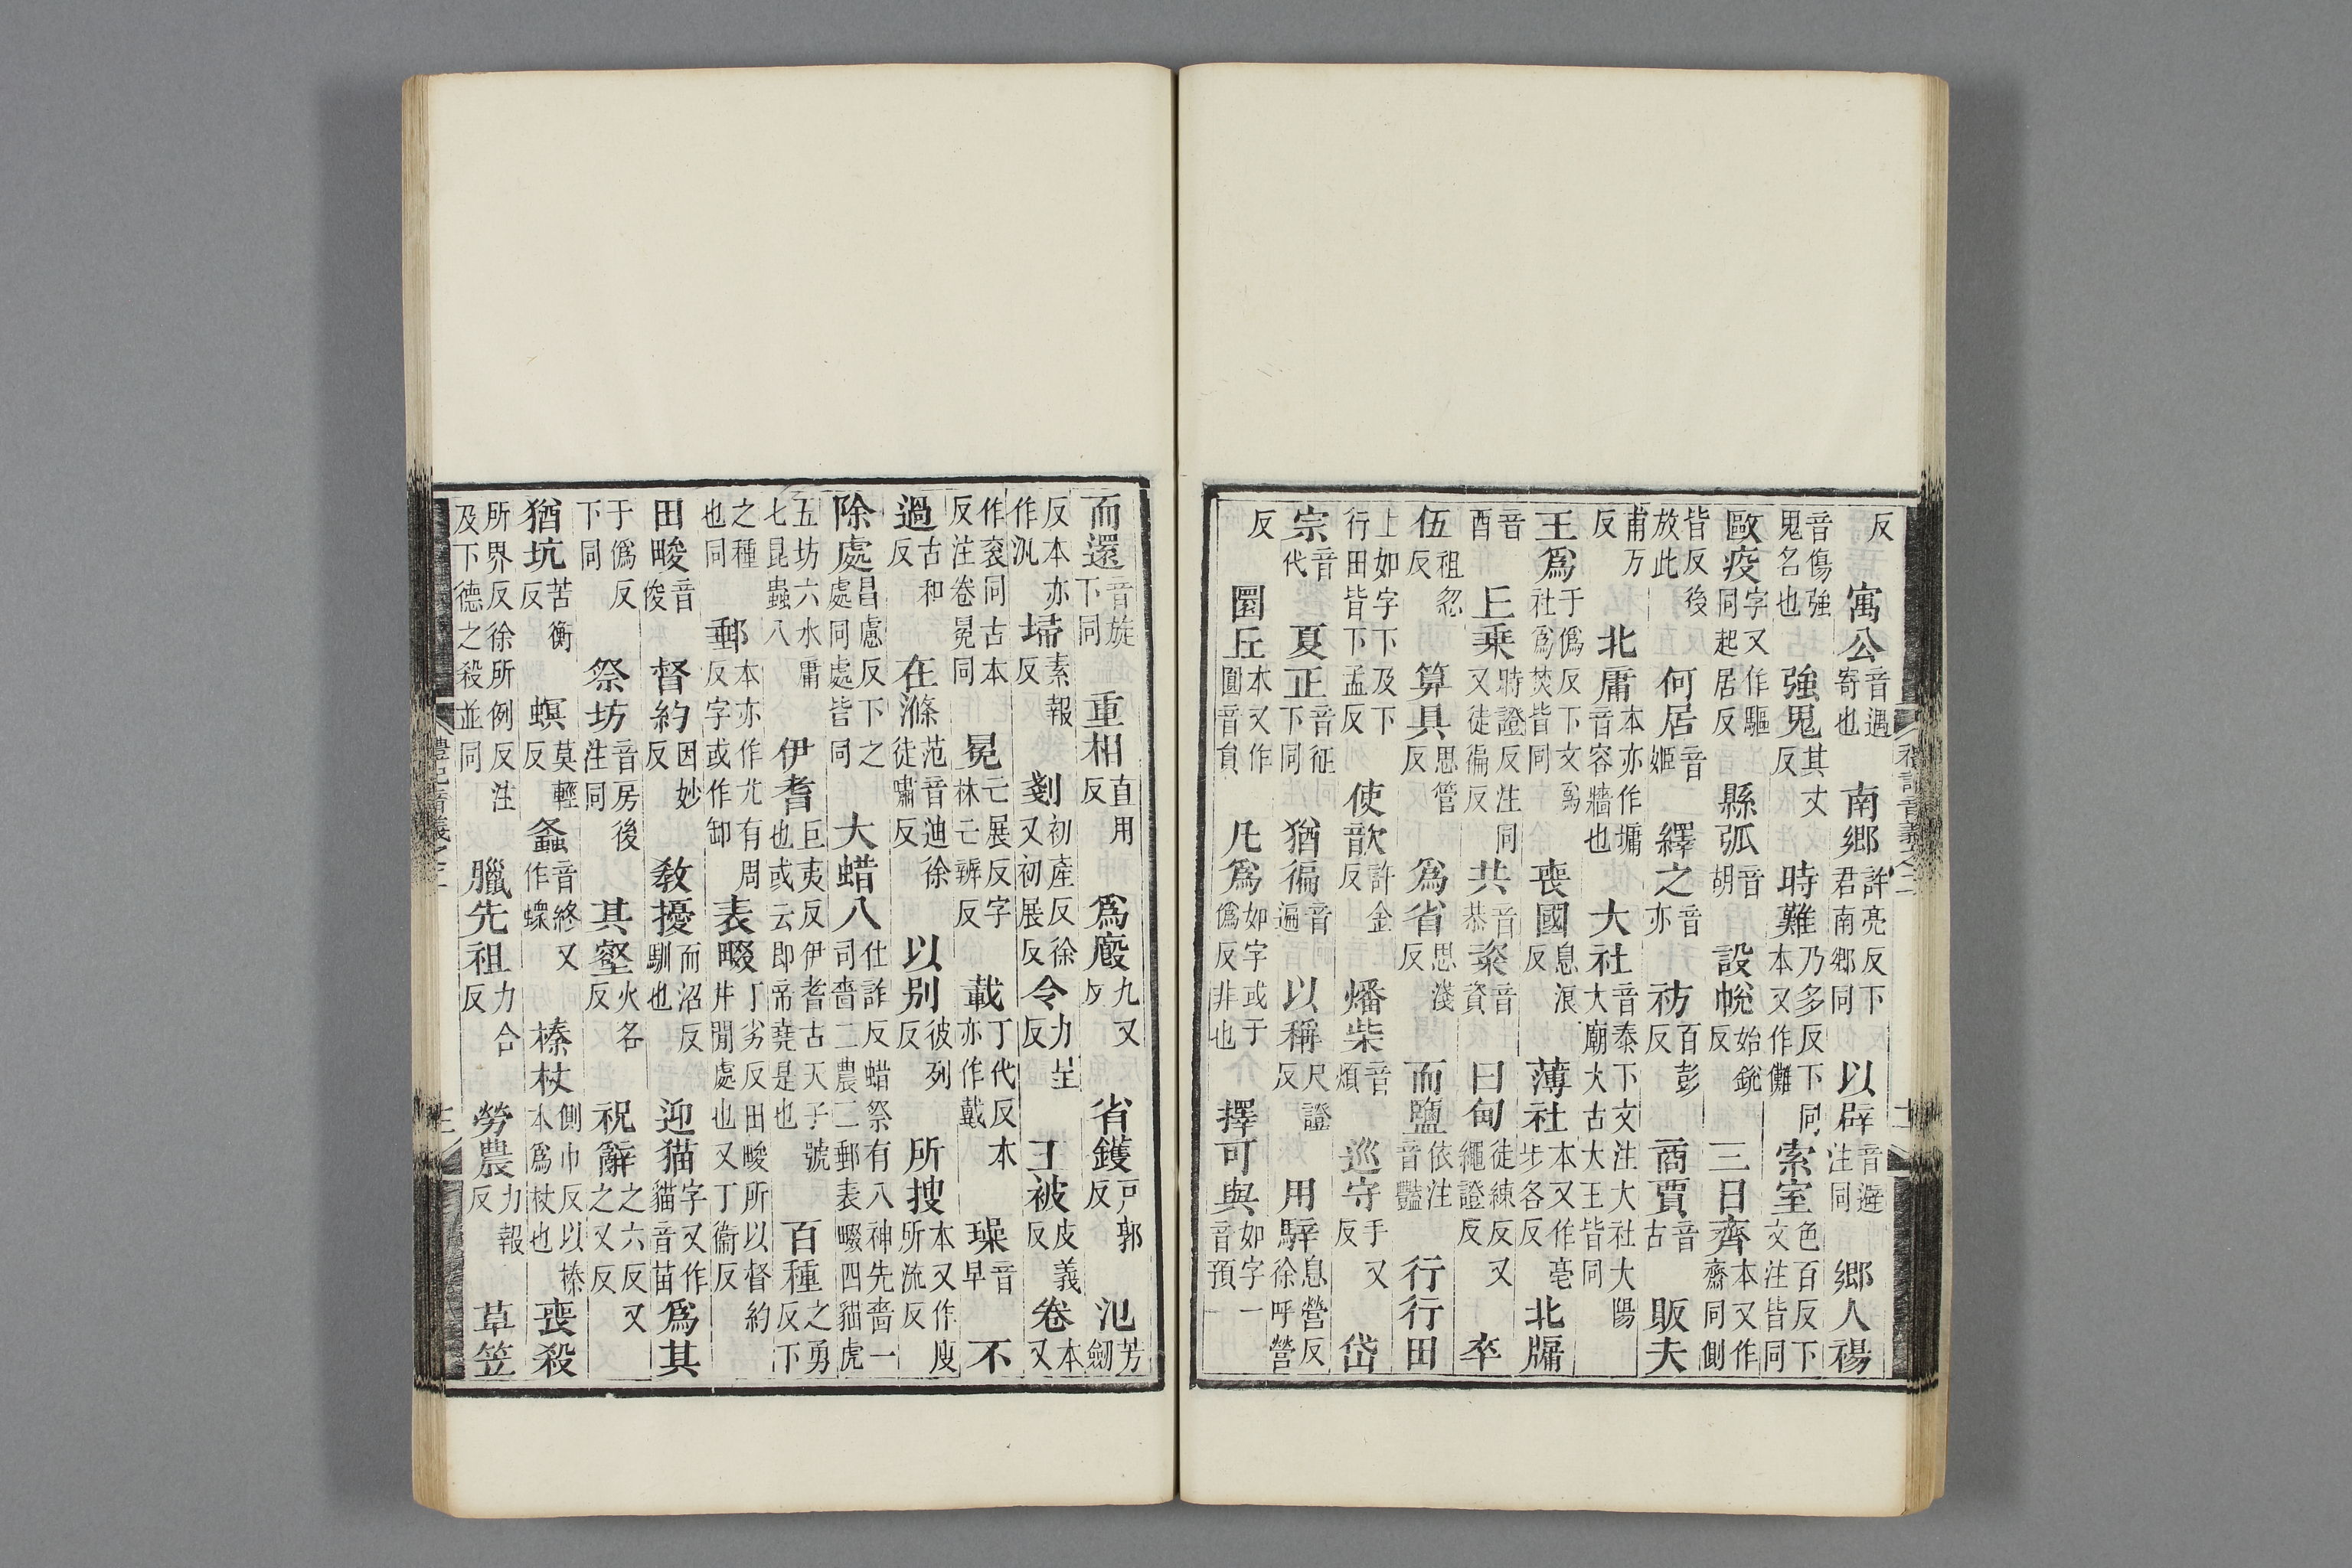 反 寓公音遇寄也 南鄉許亮反下君南鄉同 以辟音避注同 鄉人禓
音傷強鬼名也 強鬼其丈反 時難乃多反下同本又作儺 索室色百反下文注皆同
毆疫字又作驅同起居反 縣弧音胡 設帨始銳反 三日齊本又作齋同側
皆反後放此 何居音姬 繹之音亦 祊百彭反 商賈音古 販夫
甫万反 北庸本亦作墉音容牆也 大社音泰下文注大社大陽大廟大古大王皆同
王爲于僞反下文爲社爲焚皆同 喪國息浪反 薄社本又作亳步各反 北牖
音酉 丘乘時證反注同又徒徧反 共音恭 粢音資 曰甸徒練反又繩證反 卒
伍祖忽反 算具思管反 爲省思淺反 而鹽依注音豔 行行田
上如字下及下行田皆下孟反 使歆許金反 燔柴音煩 巡守手又反 岱
宗音代 夏正音征下同 猶徧音遍 以稱尺證反 用騂息營反徐呼營
反 圜丘本又作圓音員 凡爲如字或于僞反非也 擇可與如字一音預
而還音旋下同 重相直用反 爲廏九又反 省鑊戸郭反 氾芳劒
反本亦作汎 埽素報反 剗初產反徐又初展反 令力呈反 王被皮義反 卷本又
作衮同古本反注卷冕同 冕亡展反字林亡辨反 載丁代反本亦作戴 璪音早 不
過古和反 在滌范音迪徐徒嘯反 以別彼列反 所搜本又作廋所流反
除處昌慮反下之處同處皆同 大蜡八仕詐反蜡祭有八神先嗇一司嗇二農三郵表畷四貓虎
五坊六水庸七昆蟲八 伊耆巨夷反伊耆古天子號也或云即帝堯是也 百種之勇反下
之種也同 郵本亦作尤有周反字或作卸 表畷丁劣反田畯所以督約井閒處也又丁衞反
田畯音俊 督約因妙反 敎擾而沼反馴也 迎猫字又作貓音苗 爲其
于僞反下同 祭坊音房後注同 其壑火各反 祝辭之六反又之又反
猶坑苦衡反 螟莫輕反 螽音終又作䗥 榛杖側巾反以榛本爲杖也 喪殺
所界反徐所例反注及下德之殺並同 臘先祖力合反 勞農力報反 草笠
禮記音義之二